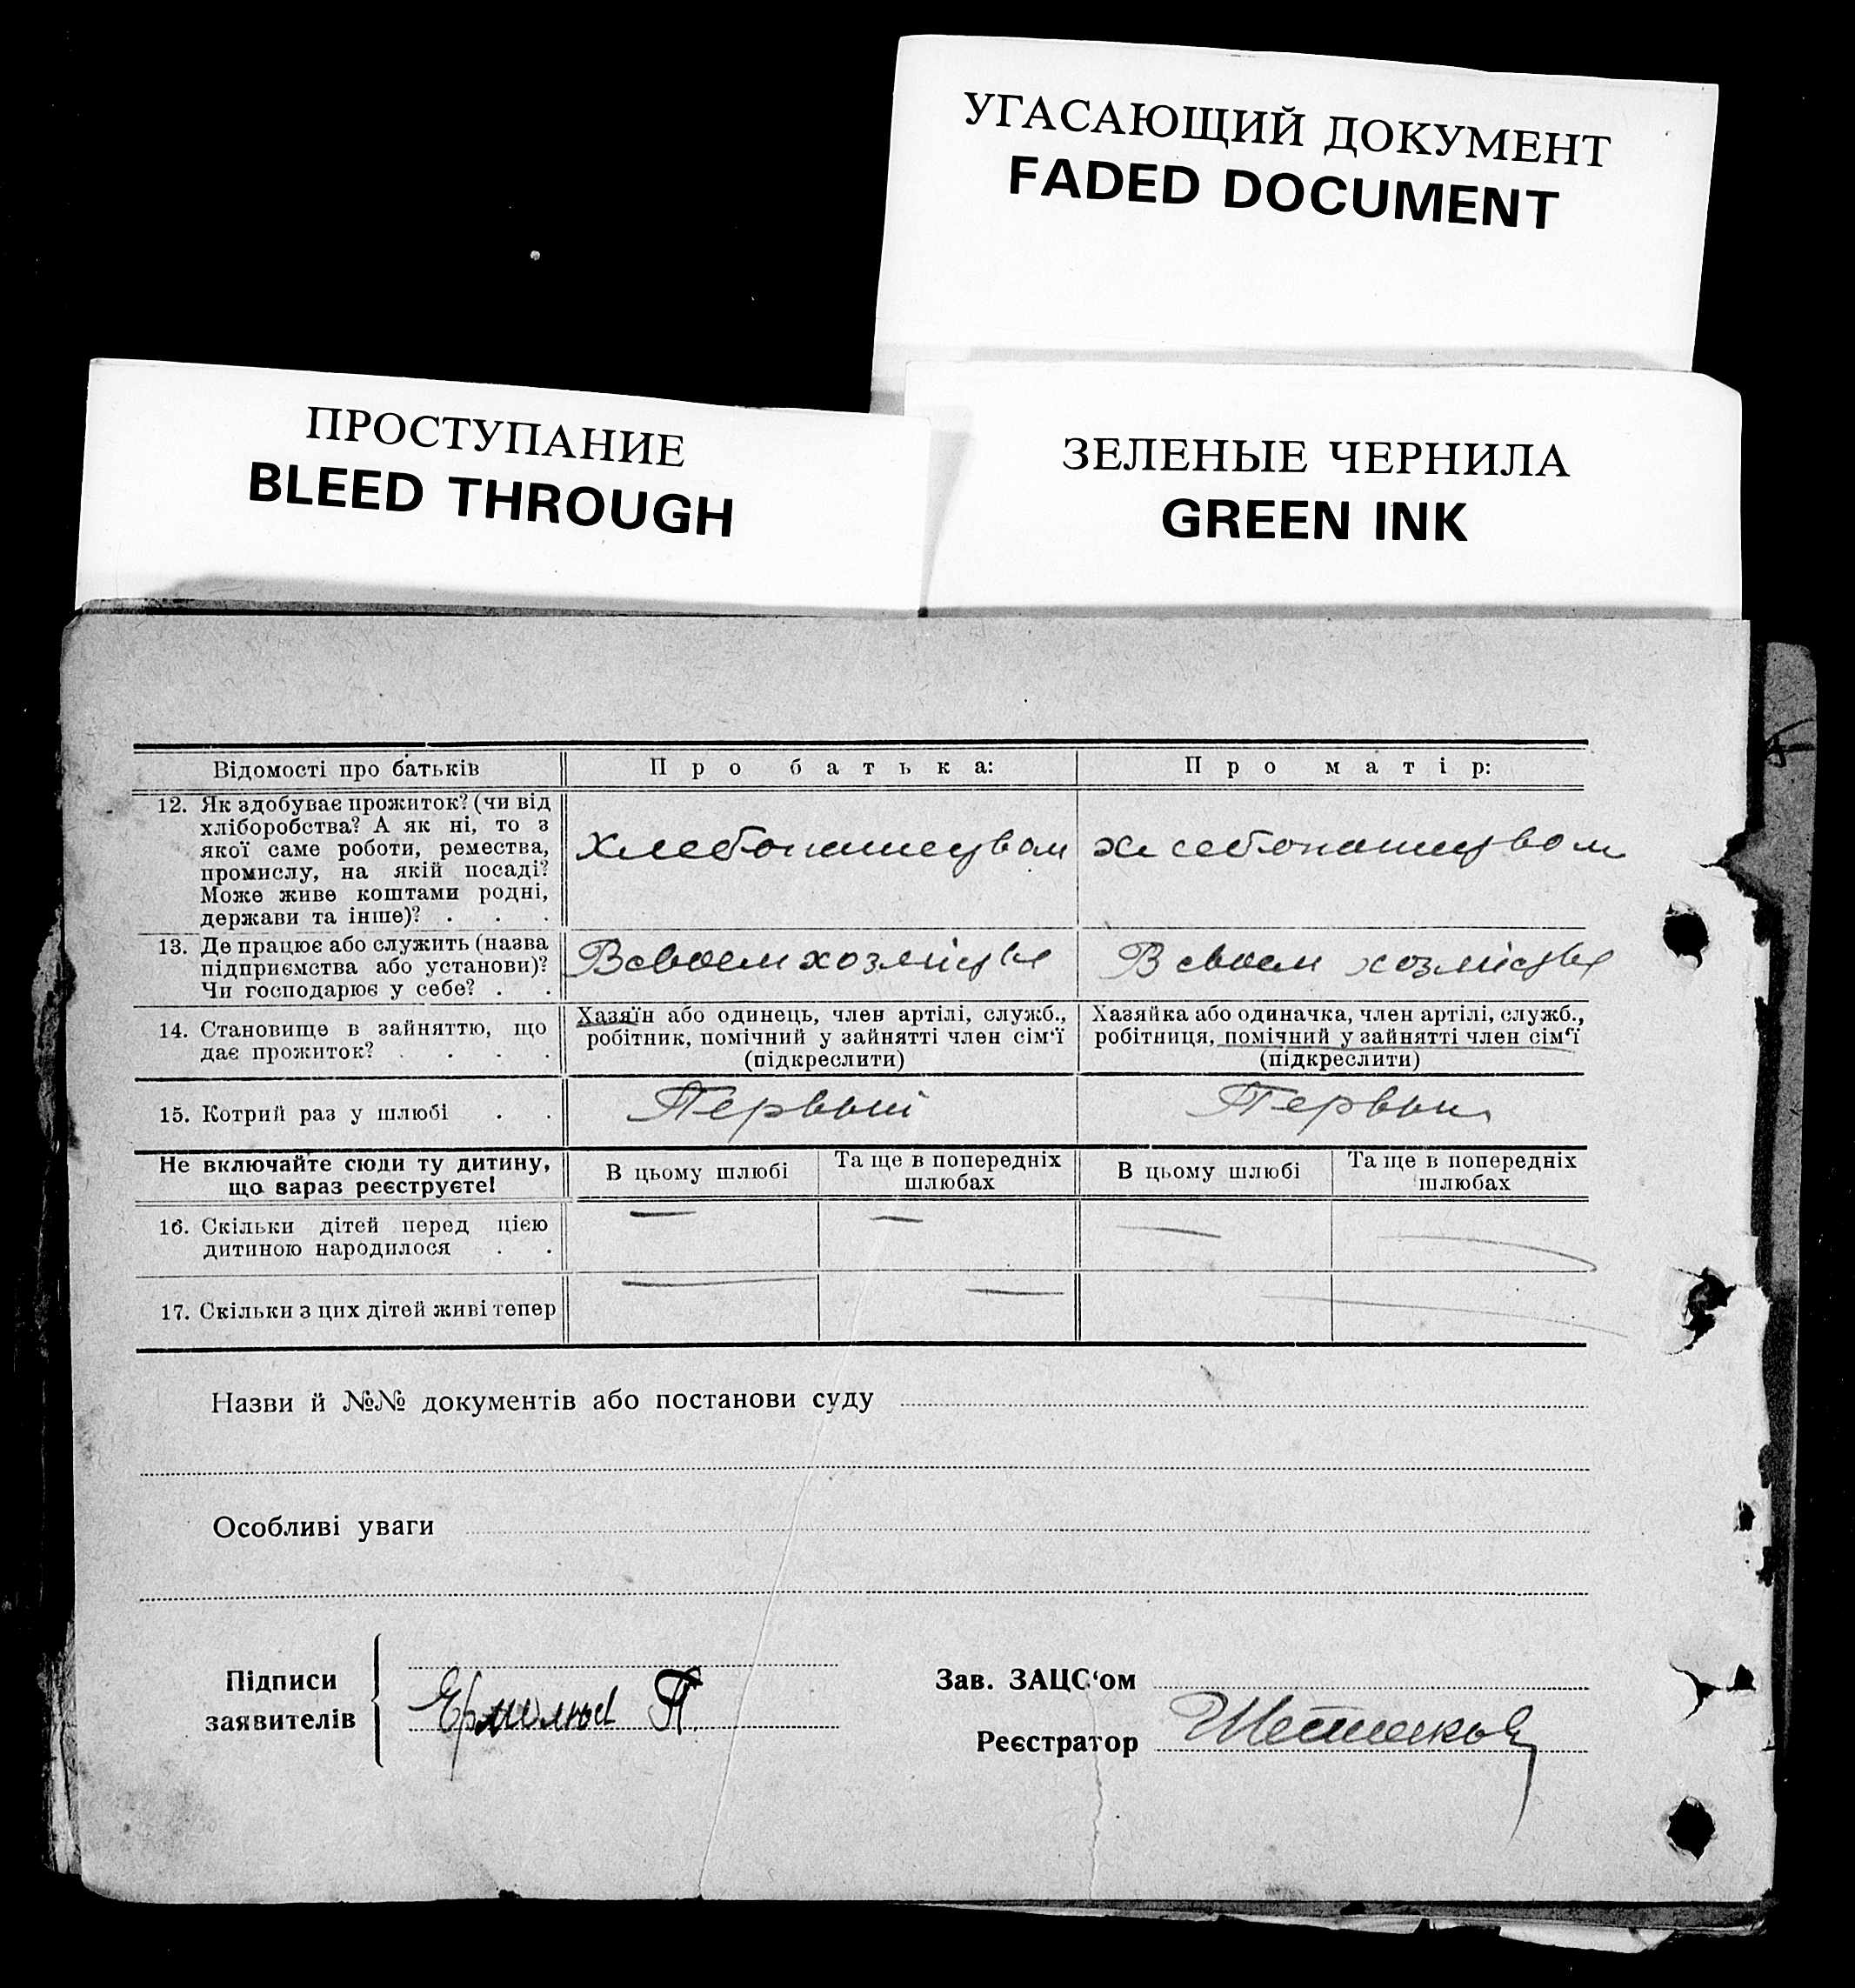 УГАСАЮЩИЙ ДОКУМЕНТ
FADED DOCUMENT
ПРОСТУПАНИЕ
BLEED THROUGH
ЗЕЛЕНЫЕ ЧЕРНИЛА
GREEN INK
Відомості про батьків
Про батька:
Про матір:
12. Як здобуває прожиток? (чи від
хліборобства? А як ні, то з
якої саме роботи, ремества,
промислу, на якій посаді?
Може живе коштами родні,
держави та інше)? . . .
Хлебопашеством
Хлебопашеством
13. Де працює або служить (назва
підприємства або установи)?
Чи господарює у себе? . .
В своем хозяйстве
В своем хозяйстве
14. Становище в зайняттю, що
дає прожиток? . . . .
Хазяїн або одинець, член артілі, служб.,
робітник, помічний у зайнятті член сім'ї
(підкреслити)
Хазяйка або одиначка, член артілі, служб.,
робітниця, помічний у зайнятті член сім'ї
(підкреслити)
15. Котрий раз у шлюбі . .
Первый
Первый
Не включайте сюди ту дитину,
що зараз реєструєте!
В цьому шлюбі
Та ще в попередніх
шлюбах
В цьому шлюбі
Та ще в попередніх
шлюбах
16. Скільки дітей перед цією
дитиною народилося . .
— — — —
17. Скільки з цих дітей живі тепер
— — —
Назви й №№ документів або постанови суду
Особливі уваги
Підписи
заявителів
П.
Зав. ЗАЦС'ом
Реєстратор